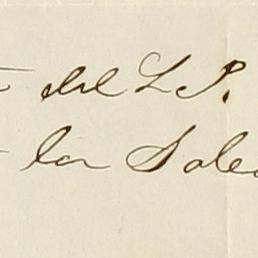 del L P.
la Sole